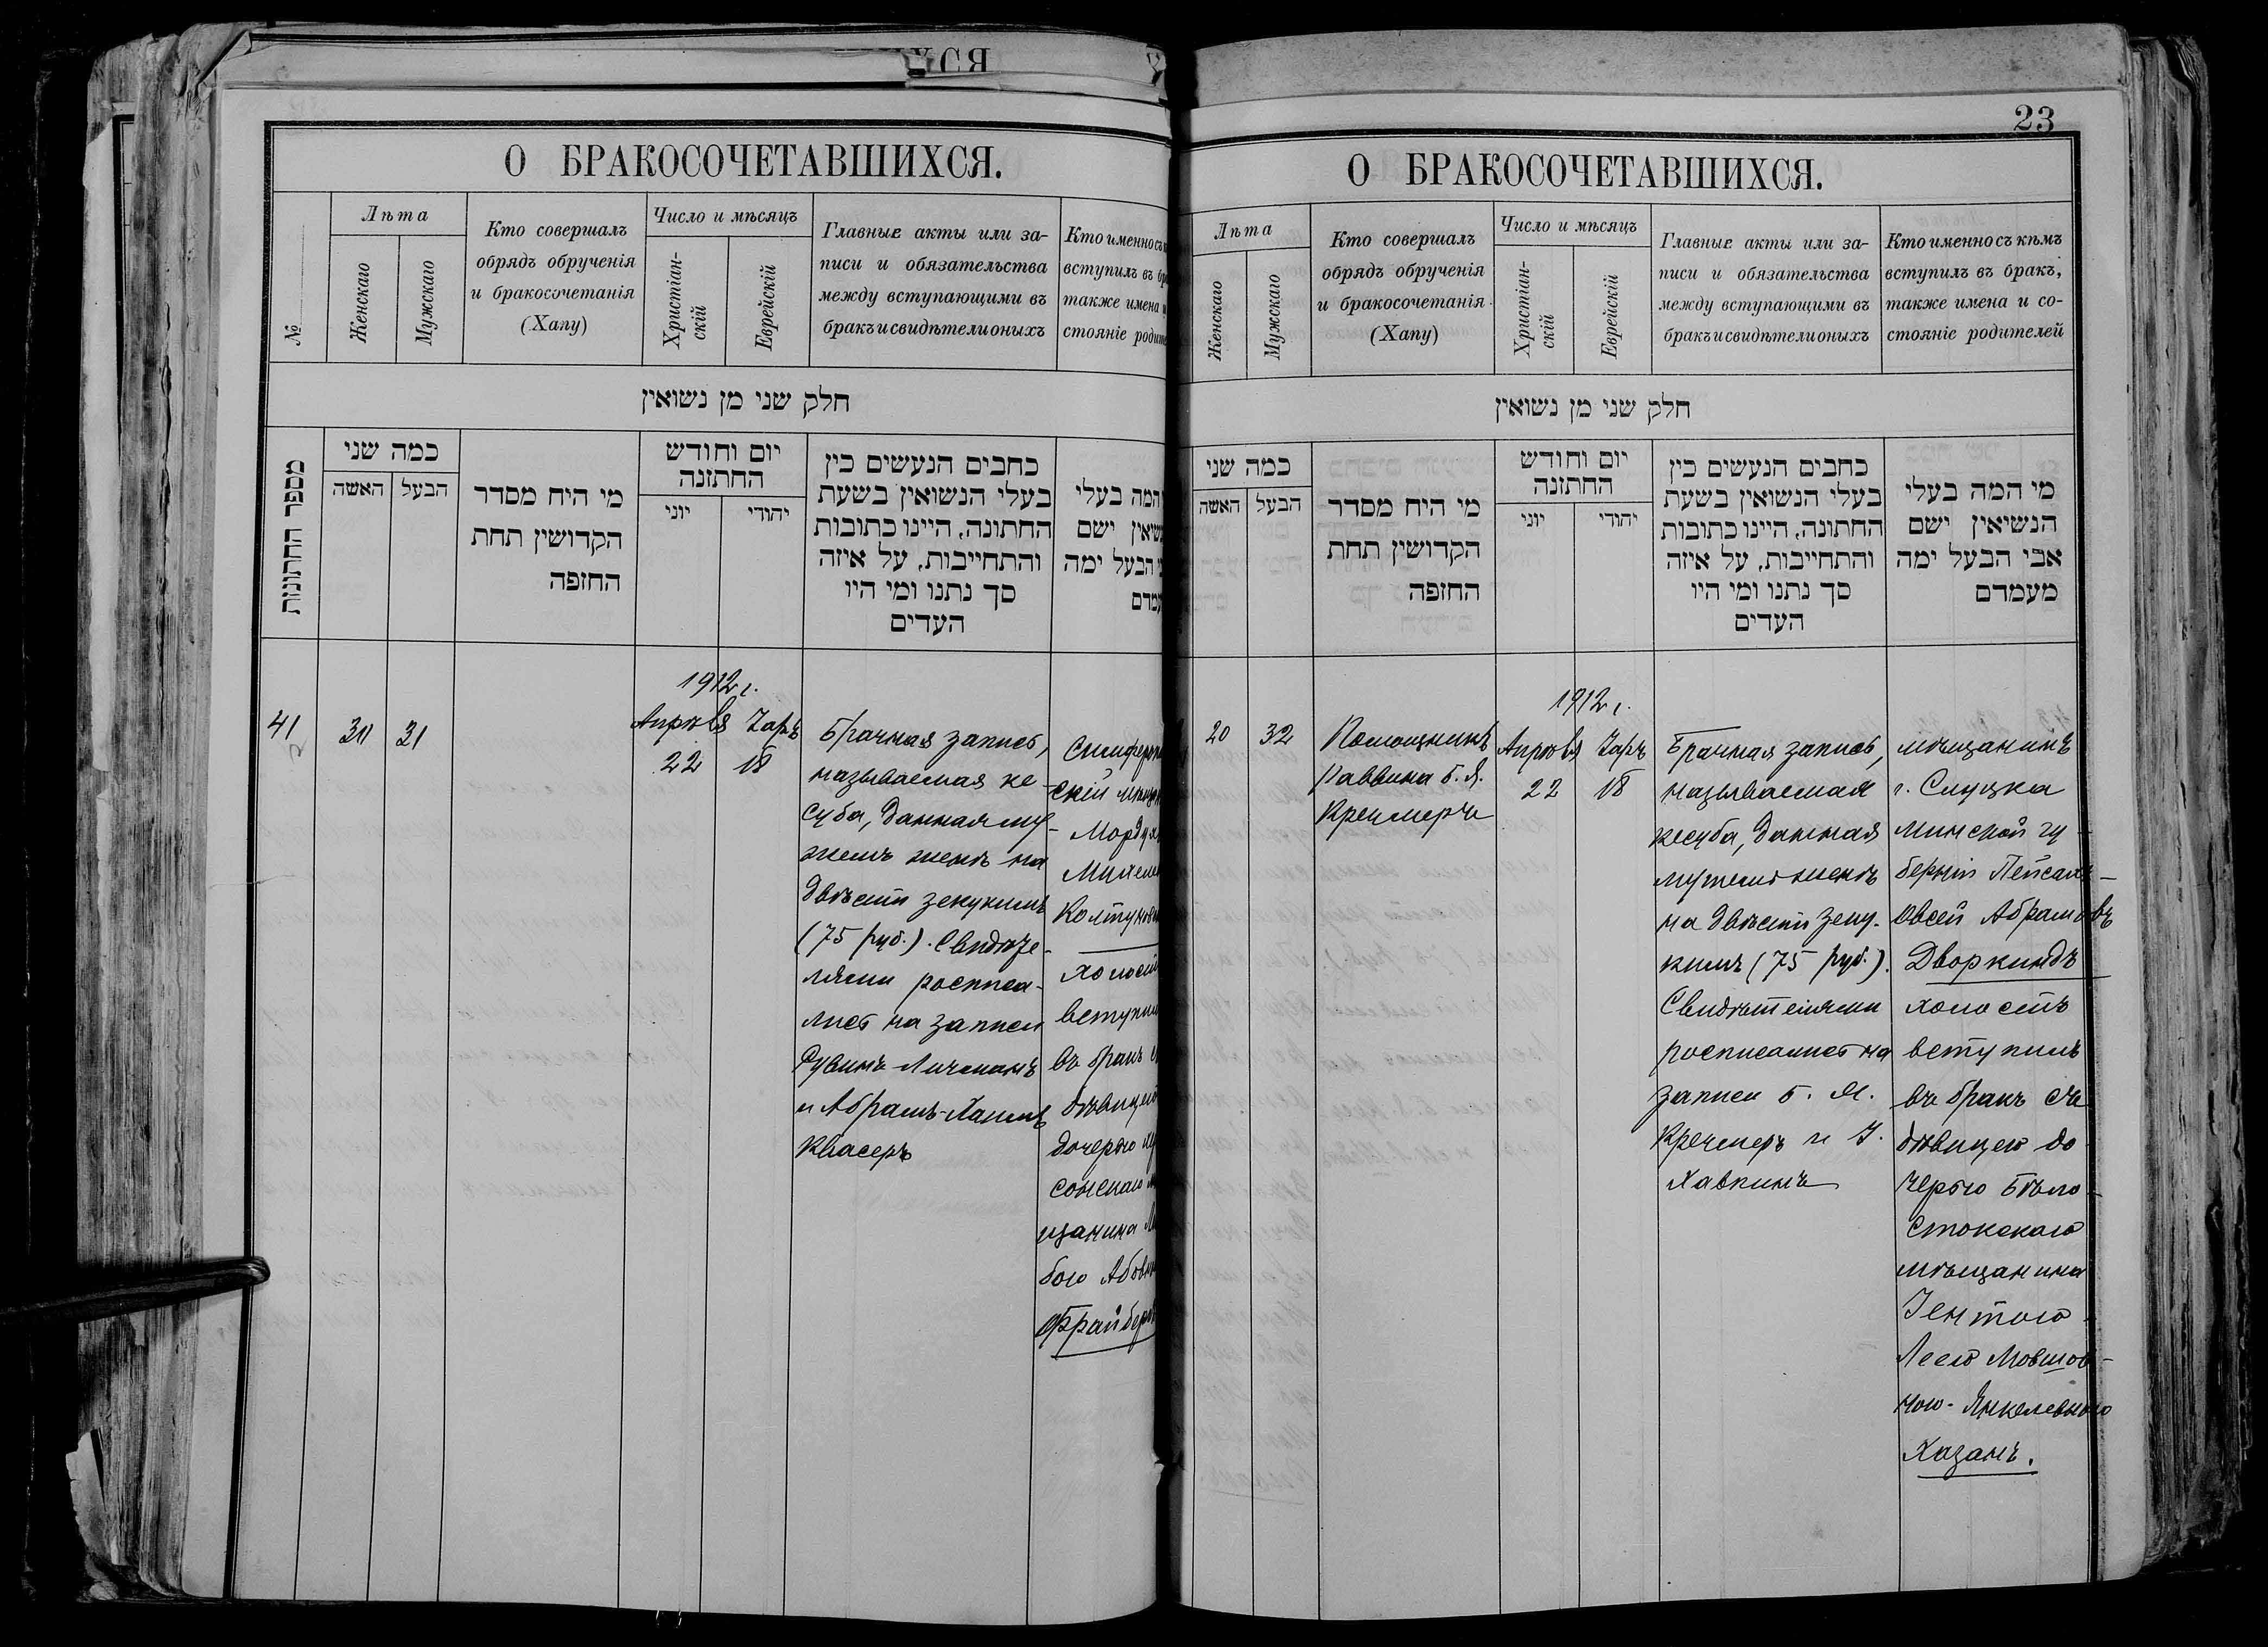 23
О БРАКОСОЧЕТАВШИХСЯ.
№
Лѣта
Женскаго
Мужскаго
Кто совершалъ
обрядъ обрученія
и бракосочетанія
(Хапу)
Число и мѣсяцъ
Христіан-
скій
Еврейскій
Главные акты или за-
писи и обязательства
между вступающими въ
бракъ и свидѣтели оныхъ
Кто именно съ
вступилъ въ
также имена
стояніе
חלק שני מן נשואין
מספר החתונות
כמה שני
האשה
הבעל
מי היח מסדר
הקדושין תחת
החזפה
יום וחודש
החתזנה
יוני
יהודי
כחבים הנעשים כין
בעלי הנשואין בשעת
החתונה, היינו כתובות
והתחייבות, על איזה
סך נתנו ומי היו
העדים
המה בעלי
ישם
הבעל ימה
41
31
31
1912 г.
Апрѣля
22
18
Брачная запись,
называемая ке-
суба, данная му-
жемъ женѣ на
двѣсти зекукимъ
(75 руб.). Свидѣте-
лями росписа-
лись на записи
Рувинъ Личманъ
и Абрамъ-Хаимъ
Квасеръ
скій
вступил
въ бракъ
дочерью
сонскаго
щанина
О БРАКОСОЧЕТАВШИХСЯ.
Лѣта
Женскаго
Мужскаго
Кто совершалъ
обрядъ обрученія
и бракосочетанія
(Хапу)
Число и мѣсяцъ
Христіан-
скій
Еврейскій
Главные акты или за-
писи и обязательства
между вступающими въ
бракъ и свидѣтели оныхъ
Кто именно съ кѣмъ
вступилъ въ бракъ,
также имена и со-
стояніе родителей
חלק שני מן נשואין
כמה שני
האשה
הבעל
מי היח מסדר
הקדושין תחת
החזפה
יום וחודש
החתזנה
יוני
יהודי
כחבים הנעשים כין
בעלי הנשואין בשעת
החתונה, היינו כתובות
והתחייבות, על איזה
סך נתנו ומי היו
העדים
מי המה בעלי
הנשיאין ישם
אבי הבעל ימה
מעמדם
20
32
Помощникъ
Раввина Б. Я.
Кречмеръ
1912 г.
Апрѣля
22
18
Брачная запись,
называемая
кесуба, данная
мужемъ женѣ
на двѣсти зеку-
кимъ (75 руб.).
Свидѣтелями
росписались на
записи Б. Я.
Кречмеръ и I.
Хавкинъ
мѣщанинъ
г. Слуцка
Минской гу-
берніи Пейсахъ-
Овсей Абрамовъ
Дворкиндъ
холостъ
вступилъ
въ бракъ съ
дѣвицею до-
черью Бѣло-
стокскаго
мѣщанина
Іентою-
Леею Мовшов-
ною-Янкелевною
Хазанъ.